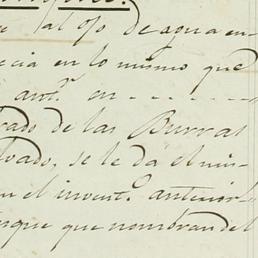 al ojo de agua en-
ecia en lo mismo que
antr. en - - - - -
rado de las Burras
lvado, se le da el mis-
en el invent.o anterior
nque que nombran del